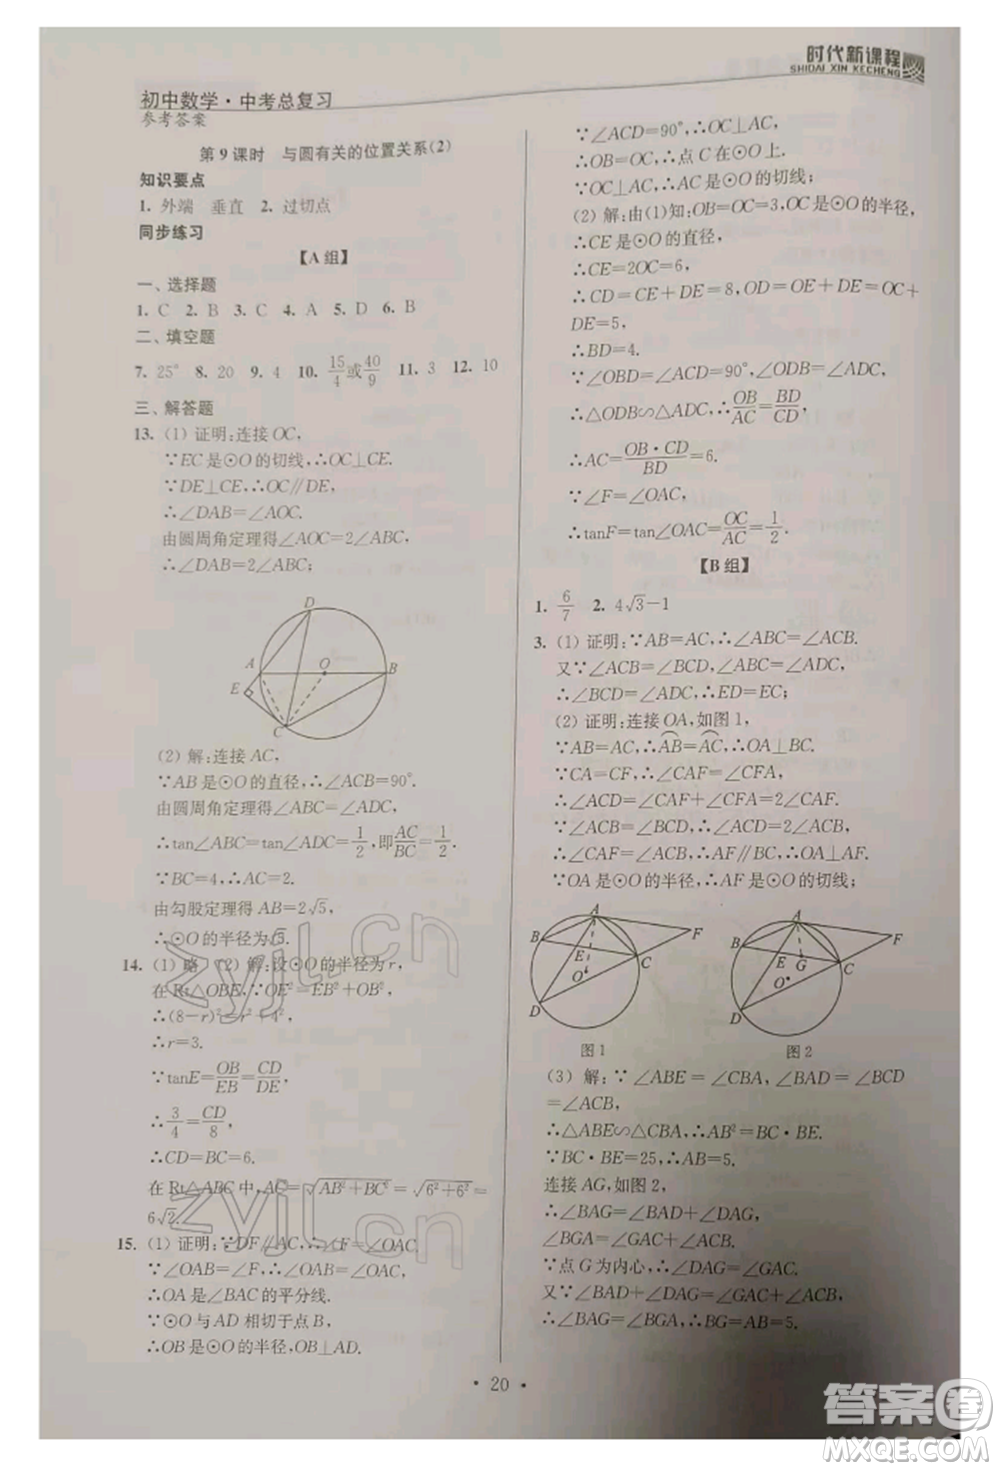 时代新课程
SHIDAI XIN KECHENG
初中数学·中考总复习
参考答案
第9课时 与圆有关的位置关系(2)
知识要点
1. 外端 垂直 2. 过切点
同步练习
【A组】
一、选择题
1. C 2. B 3. C 4. A 5. D 6. B
二、填空题
7. 25° 8. 20 9. 4 10. 15/4或40/9 11. 3 12. 10
三、解答题
13. (1) 证明:连接OC,
∵EC是⊙O的切线,∴OC⊥CE.
∵DE⊥CE,∴OC∥DE,
∴∠DAB=∠AOC.
由圆周角定理得∠AOC=2∠ABC,
∴∠DAB=2∠ABC;
D
A
O
B
E
C
(2) 解:连接AC,
∵AB是⊙O的直径,∴∠ACB=90°.
由圆周角定理得∠ABC=∠ADC,
∴tan∠ABC=tan∠ADC=1/2,即AC/BC=1/2.
∵BC=4,∴AC=2.
由勾股定理得AB=2√5,
∴⊙O的半径为√5.
14. (1) 略 (2) 解:设⊙O的半径为r,
在Rt△OBE,∵OE²=EB²+OB²,
∴(8-r)²=r²+4²,
∴r=3.
∵tanE=OB/EB=CD/DE,
∴3/4=CD/8,
∴CD=BC=6.
在Rt△ABC中,AC=√AB²+BC²=√6²+6²=
6√2.
15. (1) 证明:∵DF∥AC,∴∠F=∠OAC.
∵∠OAB=∠F,∴∠OAB=∠OAC,
∴OA是∠BAC的平分线.
∵⊙O与AD相切于点B,
∴OB是⊙O的半径,∴OB⊥AD.
∵∠ACD=90°,∴OC⊥AC,
∴OB=OC,∴点C在⊙O上.
∵OC⊥AC,∴AC是⊙O的切线;
(2) 解:由(1)知:OB=OC=3,OC是⊙O的半径,
∴CE是⊙O的直径,
∴CE=2OC=6,
∴CD=CE+DE=8,OD=OE+DE=OC+
DE=5,
∴BD=4.
∵∠OBD=∠ACD=90°,∠ODB=∠ADC,
∴△ODB∽△ADC,∴OB/AC=BD/CD,
∴AC=OB·CD/BD=6.
∵∠F=∠OAC,
∴tanF=tan∠OAC=OC/AC=1/2.
【B组】
1. 6/7 2. 4√3-1
3. (1) 证明:∵AB=AC,∴∠ABC=∠ACB.
又∵∠ACB=∠BCD,∠ABC=∠ADC,
∴∠BCD=∠ADC,∴ED=EC;
(2) 证明:连接OA,如图1,
∵AB=AC,∴AB=AC,∴OA⊥BC.
∵CA=CF,∴∠CAF=∠CFA,
∴∠ACD=∠CAF+∠CFA=2∠CAF.
∵∠ACB=∠BCD,∴∠ACD=2∠ACB,
∴∠CAF=∠ACB,∴AF∥BC,∴OA⊥AF.
∵OA是⊙O的半径,∴AF是⊙O的切线;
A
B
E
O
C
F
D
图1
A
B
E
G
O
C
F
D
图2
(3) 解:∵∠ABE=∠CBA,∠BAD=∠BCD
=∠ACB,
∴△ABE∽△CBA,∴AB²=BC·BE.
∵BC·BE=25,∴AB=5.
连接AG,如图2,
∴∠BAG=∠BAD+∠DAG,∠BGA=∠GAC+
∠BGA=∠GAC+∠ACB.
∵点G为内心,∴∠DAG=∠GAC.
又∵∠BAD+∠DAG=∠GAC+∠ACB,
∴∠BAG=∠BGA,∴BG=AB=5.
·20·
zyjl.cn
zyjl.cn
答案圈
MXQE.COM